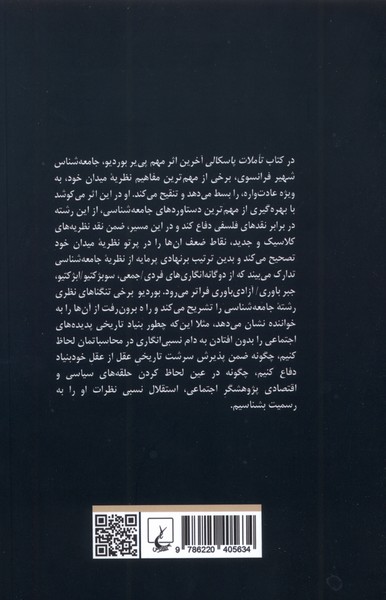 در کتاب تأملات پاسکالی آخرین اثر مهم پی‌یر بوردیو، جامعه‌شناس
شهیر فرانسوی، برخی از مهم‌ترین مفاهیم نظریهٔ میدان خود، به
ویژه عادت‌واره، را بسط می‌دهد و تنقیح می‌کند. او در این اثر می‌کوشد
با بهره‌گیری از مهم‌ترین دستاوردهای جامعه‌شناسی، از این رشته
در برابر نقدهای فلسفی دفاع کند و در این مسیر، ضمن نقد نظریه‌های
کلاسیک و جدید، نقاط ضعف آن‌ها را در پرتو نظریهٔ میدان خود
تصحیح می‌کند و بدین ترتیب برنهادی پرمایه از نظریهٔ جامعه‌شناسی
تدارک می‌بیند که از دوگانه‌انگاری‌های فردی/جمعی، سوبژکتیو/ابژکتیو،
جبر باوری/ آزادی‌باوری فراتر می‌رود. بوردیو برخی تنگناهای نظری
رشتهٔ جامعه‌شناسی را تشریح می‌کند و راه برون‌رفت از آن‌ها را به
خواننده نشان می‌دهد، مثلا این‌که چطور بنیاد تاریخی پدیده‌های
اجتماعی را بدون افتادن به دام نسبی‌انگاری در محاسباتمان لحاظ
کنیم، چگونه ضمن پذیرش سرشت تاریخی عقل از عقل خودبنیاد
دفاع کنیم، چگونه در عین لحاظ کردن حلقه‌های سیاسی و
اقتصادی پژوهشگر اجتماعی، استقلال نسبی نظرات او را به
رسمیت بشناسیم.
9 786220 405634